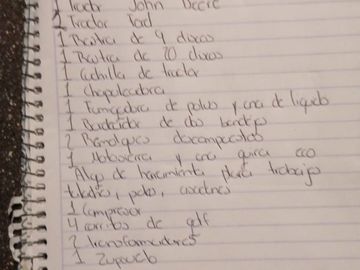 1 Tractor John Deere
2 Tractor Ford
1 Rastra de 9 discos
1 Rastra de 20 discos
1 Cuchilla de tractor
1 Chapeadora
1 Fumigadora de polvo y una de liquido
1 de dos bandejas
2 Remolques
1 y una
Algo de herramienta para trabajo
palas, picos,
1 Compresor
4 carritos de golf
2 transformadores
1 Zupareto